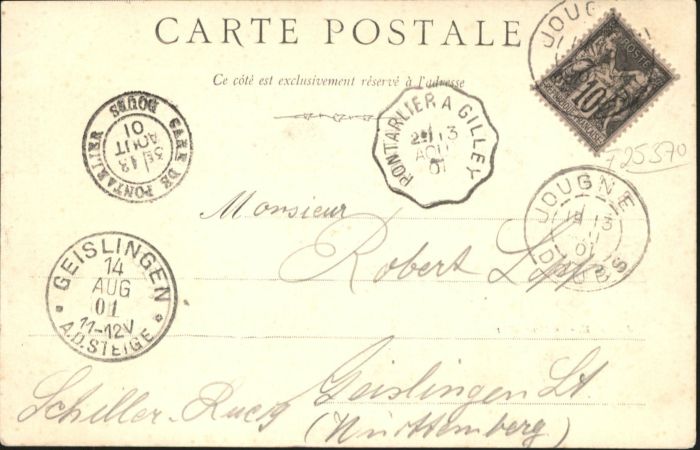 CARTE POSTALE
Ce côté est exclusivement réservé à l'adresse
JOUGNE
POSTE
10
125370
GARE DE PONTARLIER DOUBS
3E 13
AOUT
01
PONTARLIER A GILLEY
2E 13
AOU
01
JOUGNE
13
01
DOUBS
GEISLINGEN
14
AUG
01
11-12V
A.D. STEIGE
Monsieur
Robert
Geislingen St.
Schiller-
(Württemberg)